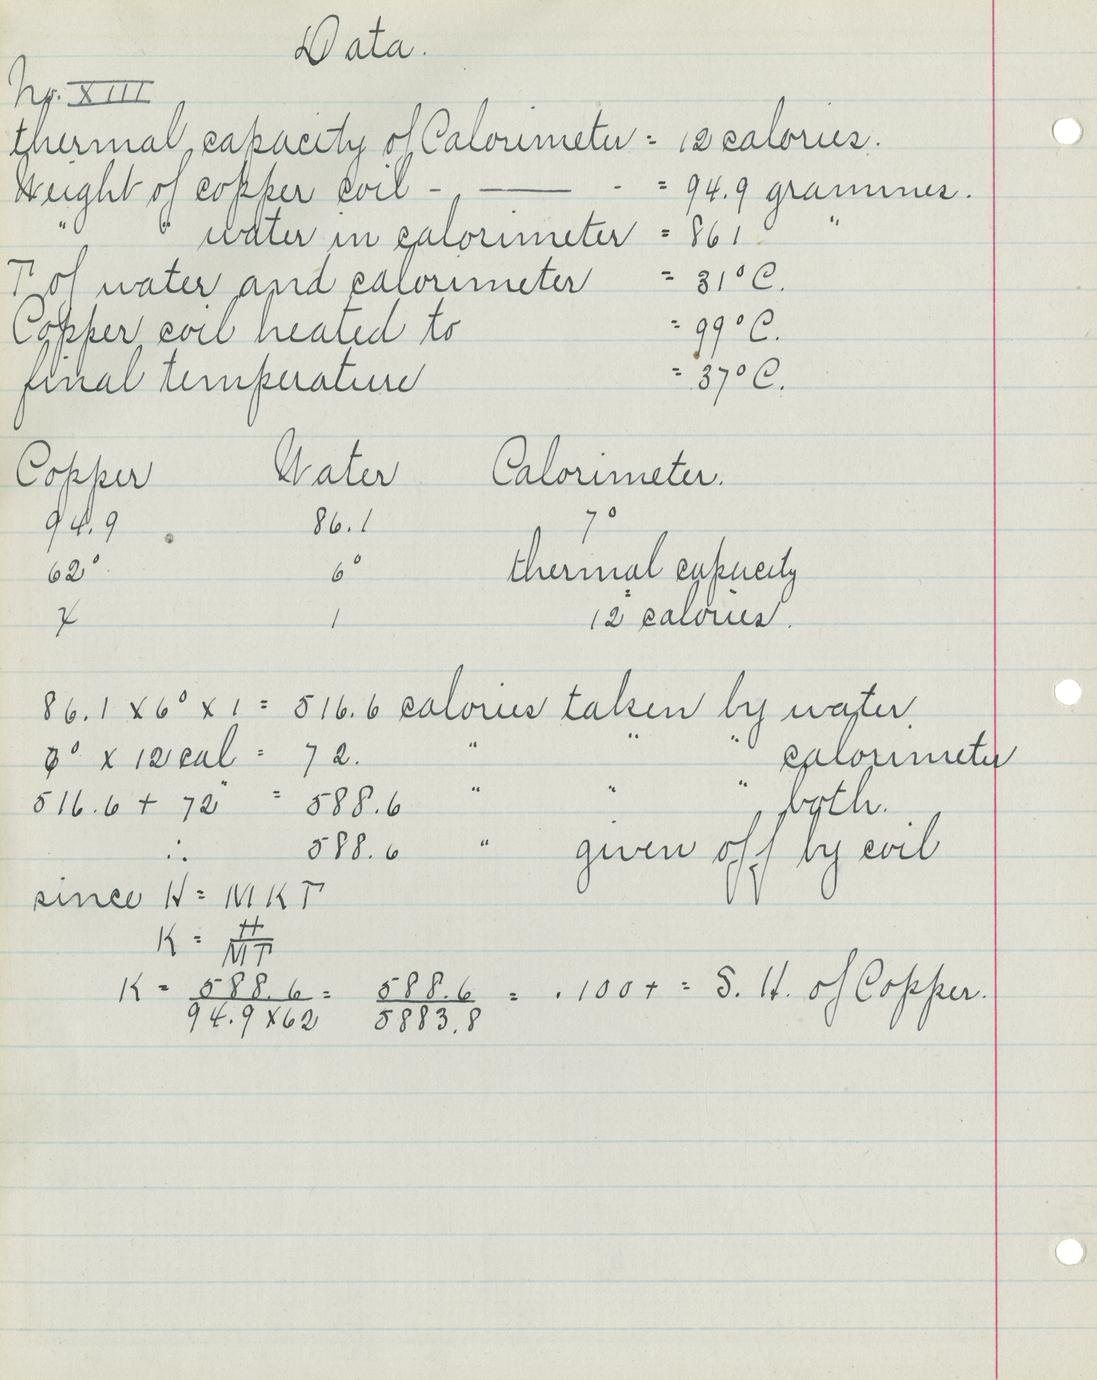 Data.
No. XIII
thermal capacity of Calorimeter = 12 calories.
Weight of copper coil - — - = 94.9 grammes.
" " water in calorimeter = 861 "
T of water and calorimeter = 31° C.
Copper coil heated to = 99° C.
final temperature = 37° C.
Copper Water Calorimeter.
94.9 86.1 7°
62° 6° thermal capacity
x 1 12 calories.
86.1 x 6° x 1 = 516.6 calories taken by water
6° x 12 cal = 72. " " " calorimeter
516.6 + 72 " = 588.6 " " " both.
∴ 588.6 " given off by coil
since H = MKT
K = H/MT
K = 588.6/94.9 x 62 = 588.6/5883.8 = .100+ = S. H. of Copper.